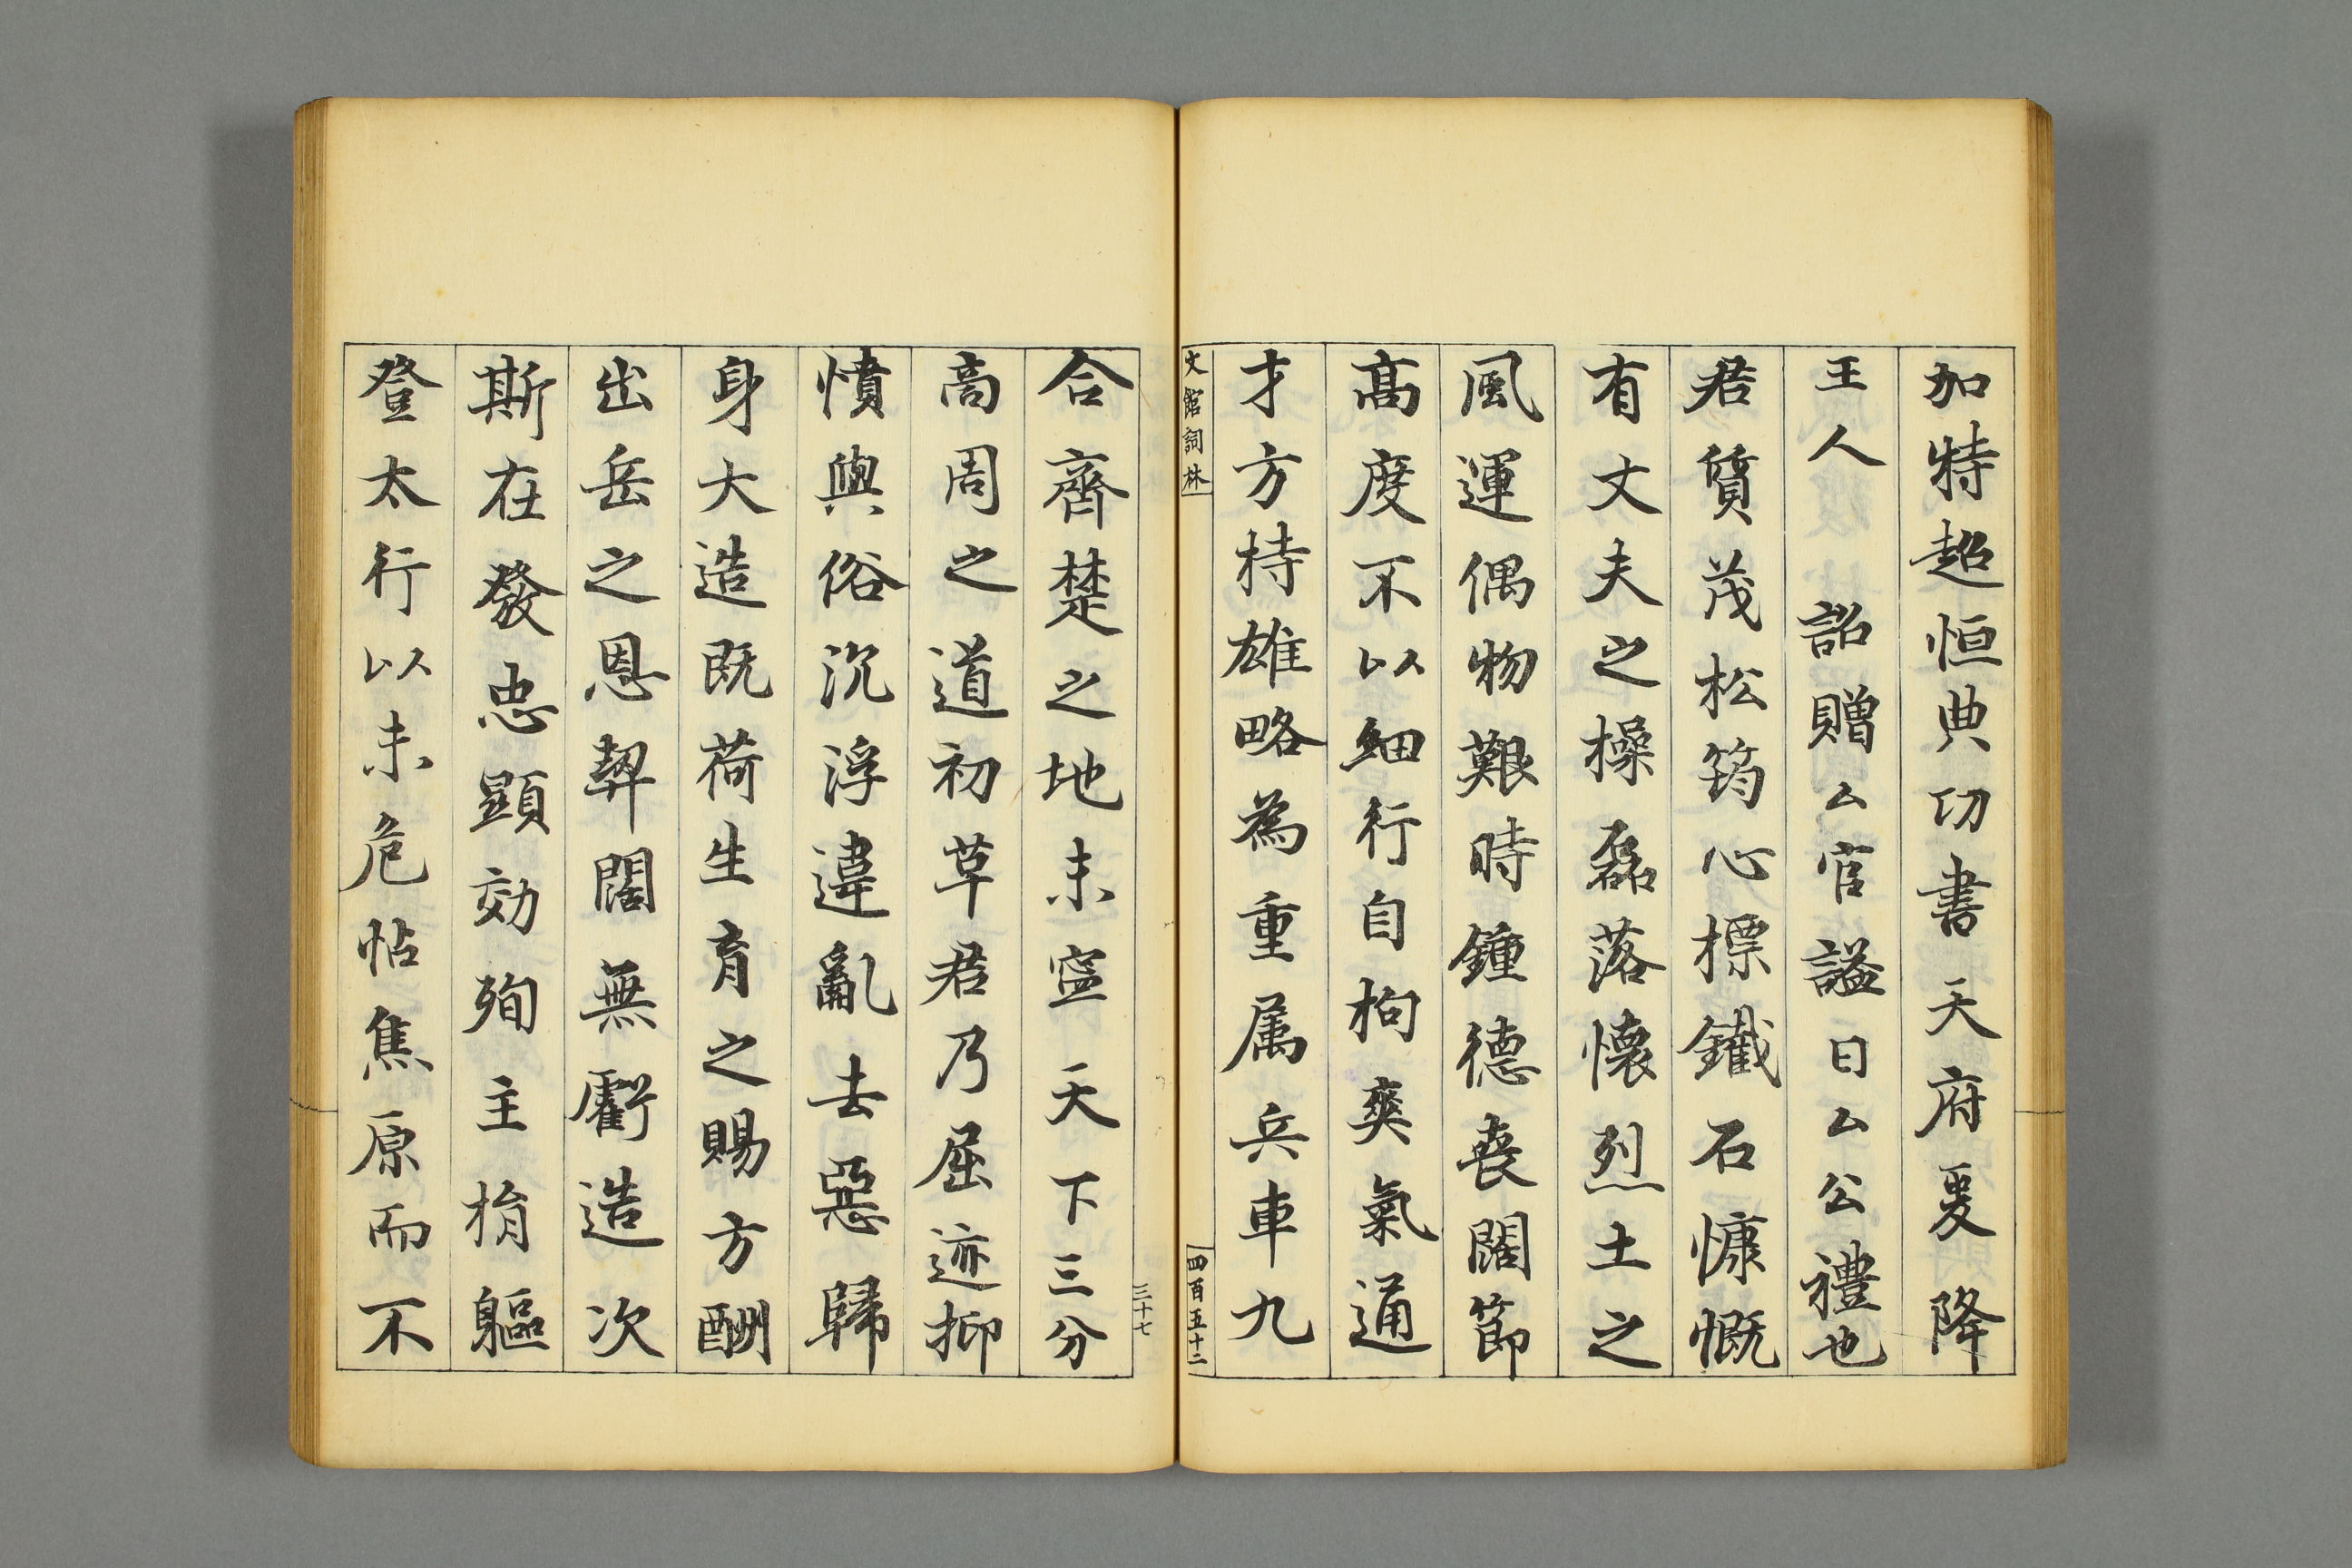 加特超恒典功書天府爰降
王人　詔贈厶官謚曰厶公禮也
君質茂松筠心標鐵石慷慨
有丈夫之操磊落懷烈士之
風運偶物艱時鍾德喪闊節
高度不以細行自拘爽氣通
才方持雄略為重属兵車九
文館詞林
四百五十二
三十七
合齊楚之地未寧天下三分
高周之道初草君乃屈迹抑
憤與俗沉浮違亂去惡歸
身大造既荷生育之賜方酬
出岳之恩契闊無虧造次
斯在發忠顯効殉主捐軀
登太行以未危怗焦原而不